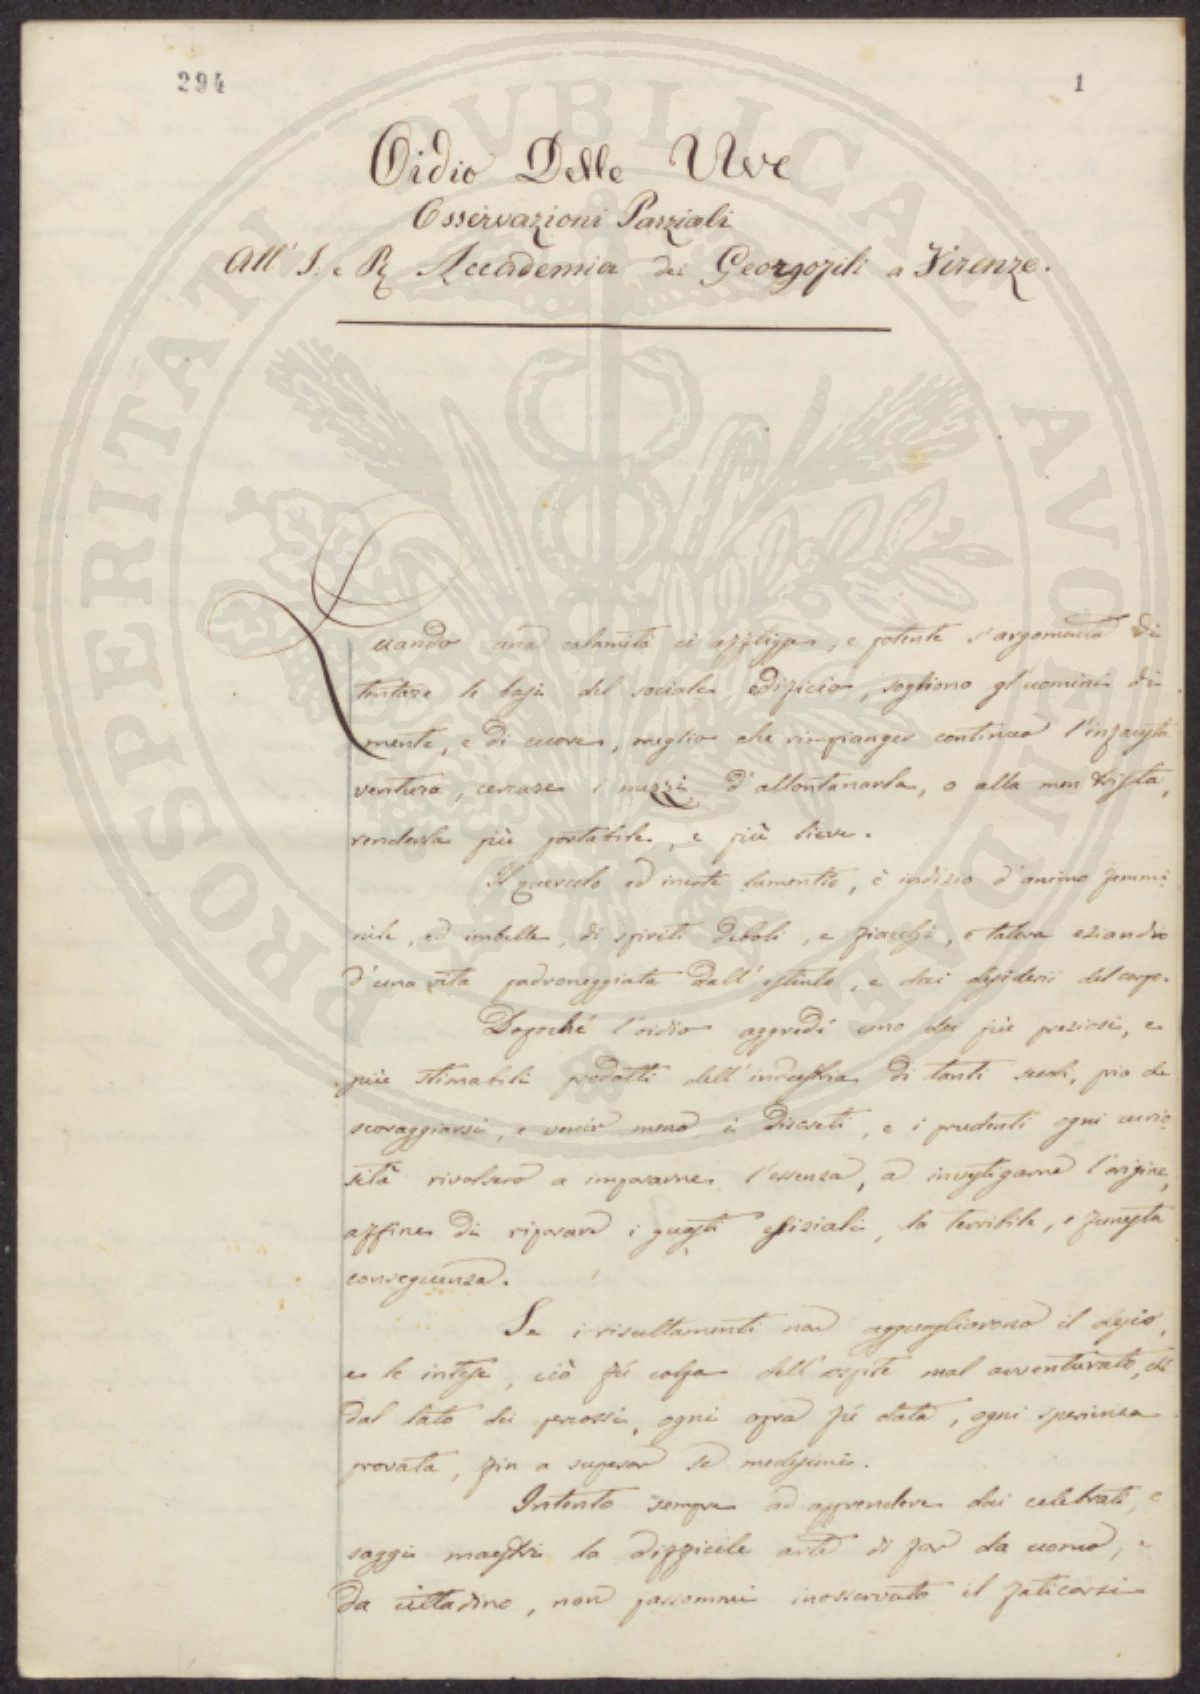 294
1
Oidio Delle Uve
Osservazioni Parziali
All' I. e R. Accademia dei Georgofili a Firenze.
Quando una calamità ci affligge, e potente s'argomenta di
tentare le basi del sociale edificio, sogliono gl'uomini di
mente, e di cuore, meglio che rimpianger continuo l'infausta
ventura, cercare i mezzi d'allontanarla, o alla men trista,
renderla più portabile, e più lieve.
Il querulo ed inerte lamento, è indizio d'animo femmi
nile, ed imbelle, di spiriti deboli, e fiacchi, e talora eziandio
d'una vita padroneggiata dall'istinto, e dai desideri del corpo.
Dopoché l'oidio aggredì uno dei più preziosi, e
più stimabili prodotti dell'industria di tanti secoli, pria di
scoraggiarsi, e venir meno i discreti, e i prudenti ogni curio
sità rivolsero a impararne l'essenza, a investigarne l'origine,
affine di riparare i guasti effiziali, la terribile, e funesta
conseguenza.
Se i risultamenti non agguagliarono il desio,
e le intese, ciò fu colpa dell'ospite mal avventurato, chè
dal lato dei percossi, ogni opra fu data, ogni sperienza
provata, fin a superar se medesimi.
Intento sempre ad apprendere dai celebrati, e
saggi maestri la difficile arte di far da uomo, e
da cittadino, non passommi inosservato il faticarsi
PROSPERITATI PUBLICAE AUGENDAE